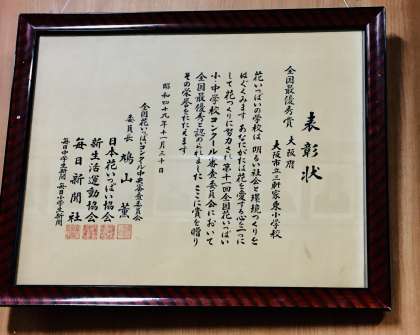 表彰状
全国最優秀賞 大阪府
大阪市立三軒家東小学校
花いっぱいの学校は 明るい社会と環境づくりを
はぐくみます あなたがたは花を愛する心を一つに
して花つくりに努力され第十一回全国花いっぱい
小・中学校コンクール審査委員会において
全国最優秀と認められました ここに賞を贈り
その栄誉をたたえます
昭和四十九年十一月三十日
全国花いっぱいコンクール中央審査委員会
委員長 鳩山薫
日本花いっぱい協会
新生活運動協会
毎日新聞社
毎日中学生新聞 毎日小学生新聞